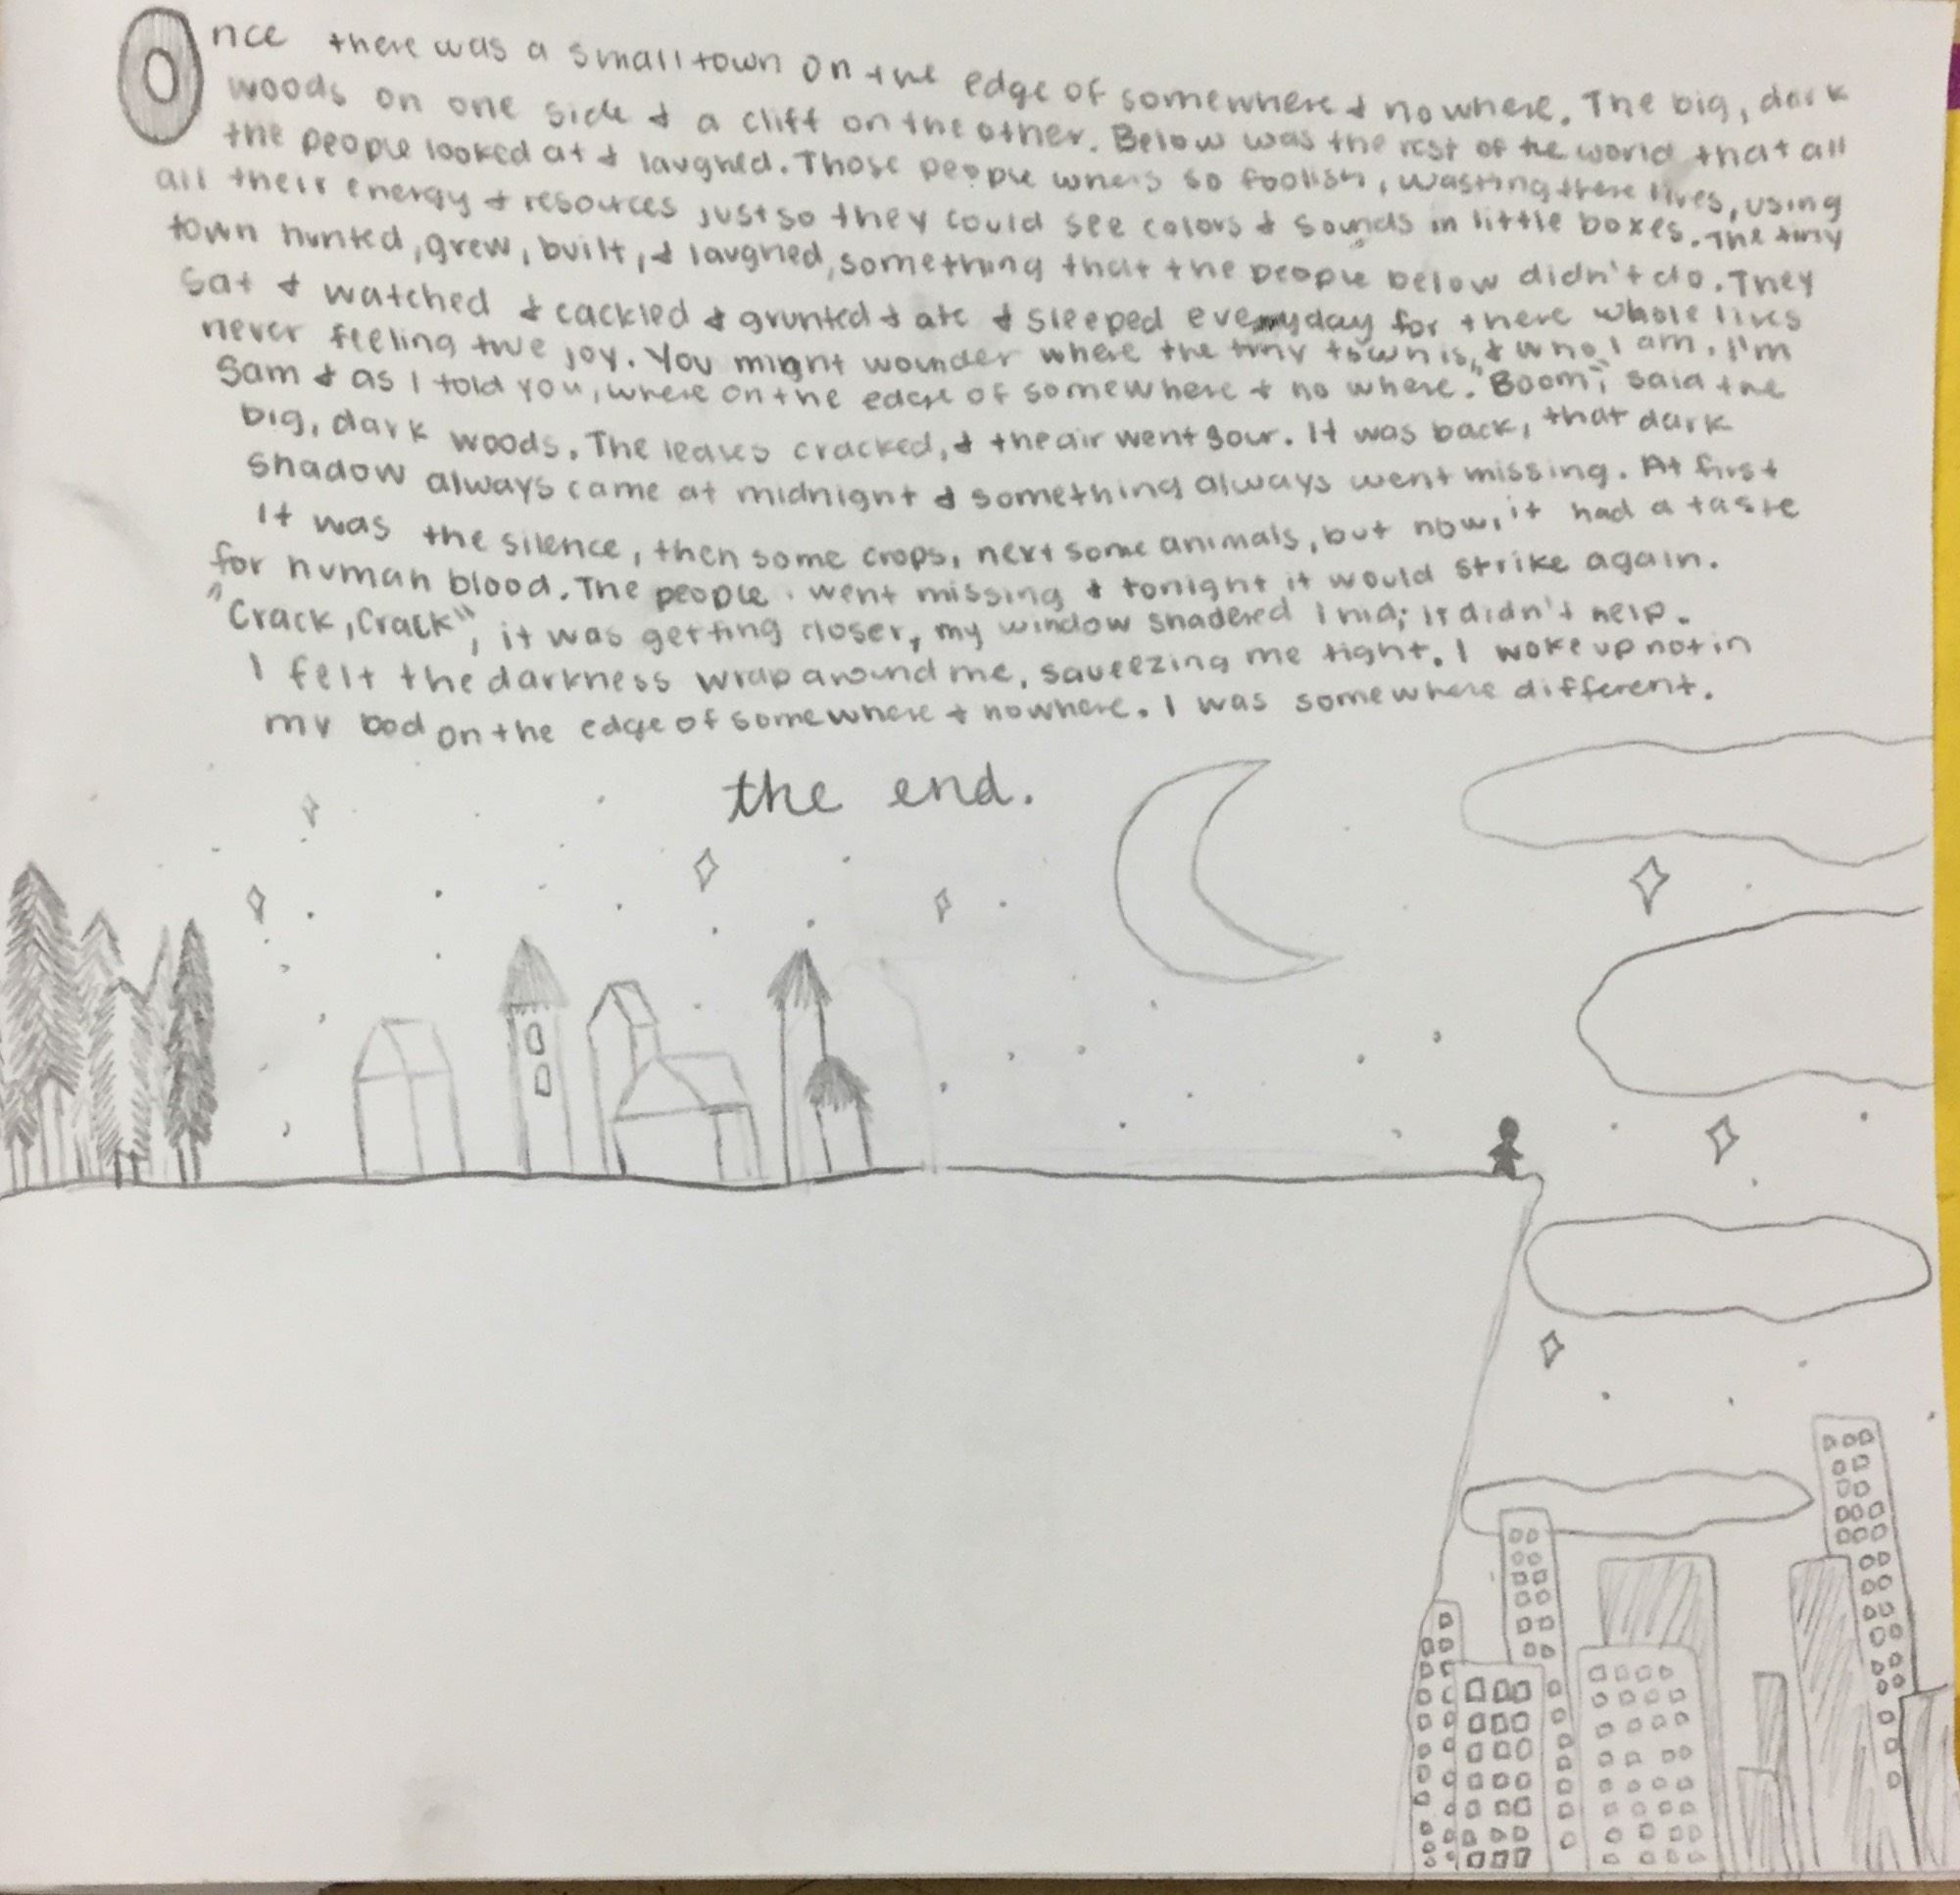 Once there was a small town on the edge of somewhere & nowhere. The big, dark
woods on one side & a cliff on the other. Below was the rest of the world that all
the people looked at & laughed. Those people were so foolish, wasting there lives, using
all their energy & resources just so they could see colors & sounds in little boxes. The tiny
town hunted, grew, built, & laughed, something that the people below didn't do. They
sat & watched & cackled & grunted & ate & sleeped everyday for there whole lives
never feeling true joy. You might wounder where the tiny town is, & who I am. I'm
Sam & as I told you, where on the edge of somewhere & no where. "Boom", said the
big, dark woods. The leaves cracked, & the air went sour. It was back, that dark
shadow always came at midnight & something always went missing. At first
it was the silence, then some crops, next some animals, but now, it had a taste
for human blood. The people went missing & tonight it would strike again.
"Crack, Crack", it was getting closer, my window shadered I hid; it didn't help.
I felt the darkness wrap around me, squeezing me tight. I woke up not in
my bed on the edge of somewhere & nowhere. I was somewhere different.
the end.